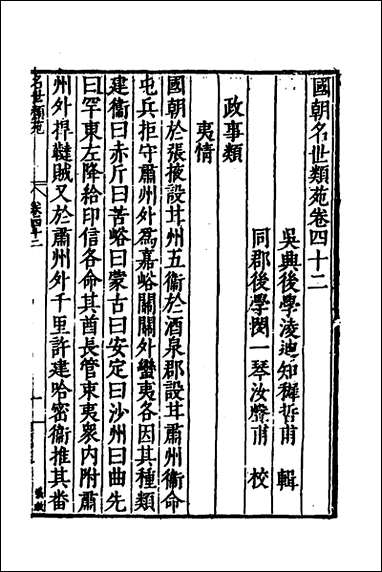 國朝名世類苑卷四十二
吳興後學凌迪知穉哲甫 輯
同郡後學閔一琴汝聲甫 校
政事類
夷情
國朝於張掖設甘州五衛於酒泉郡設甘肅州衛命
屯兵拒守肅州外爲嘉峪關關外蠻夷各因其種類
建衛曰赤斤曰苦峪曰蒙古曰安定曰沙州曰曲先
曰罕東左降給印信各命其酋長管束夷衆内附肅
州外捍韃賊又於肅州外千里許建哈密衛推其畨
名世類苑
卷四十二
一